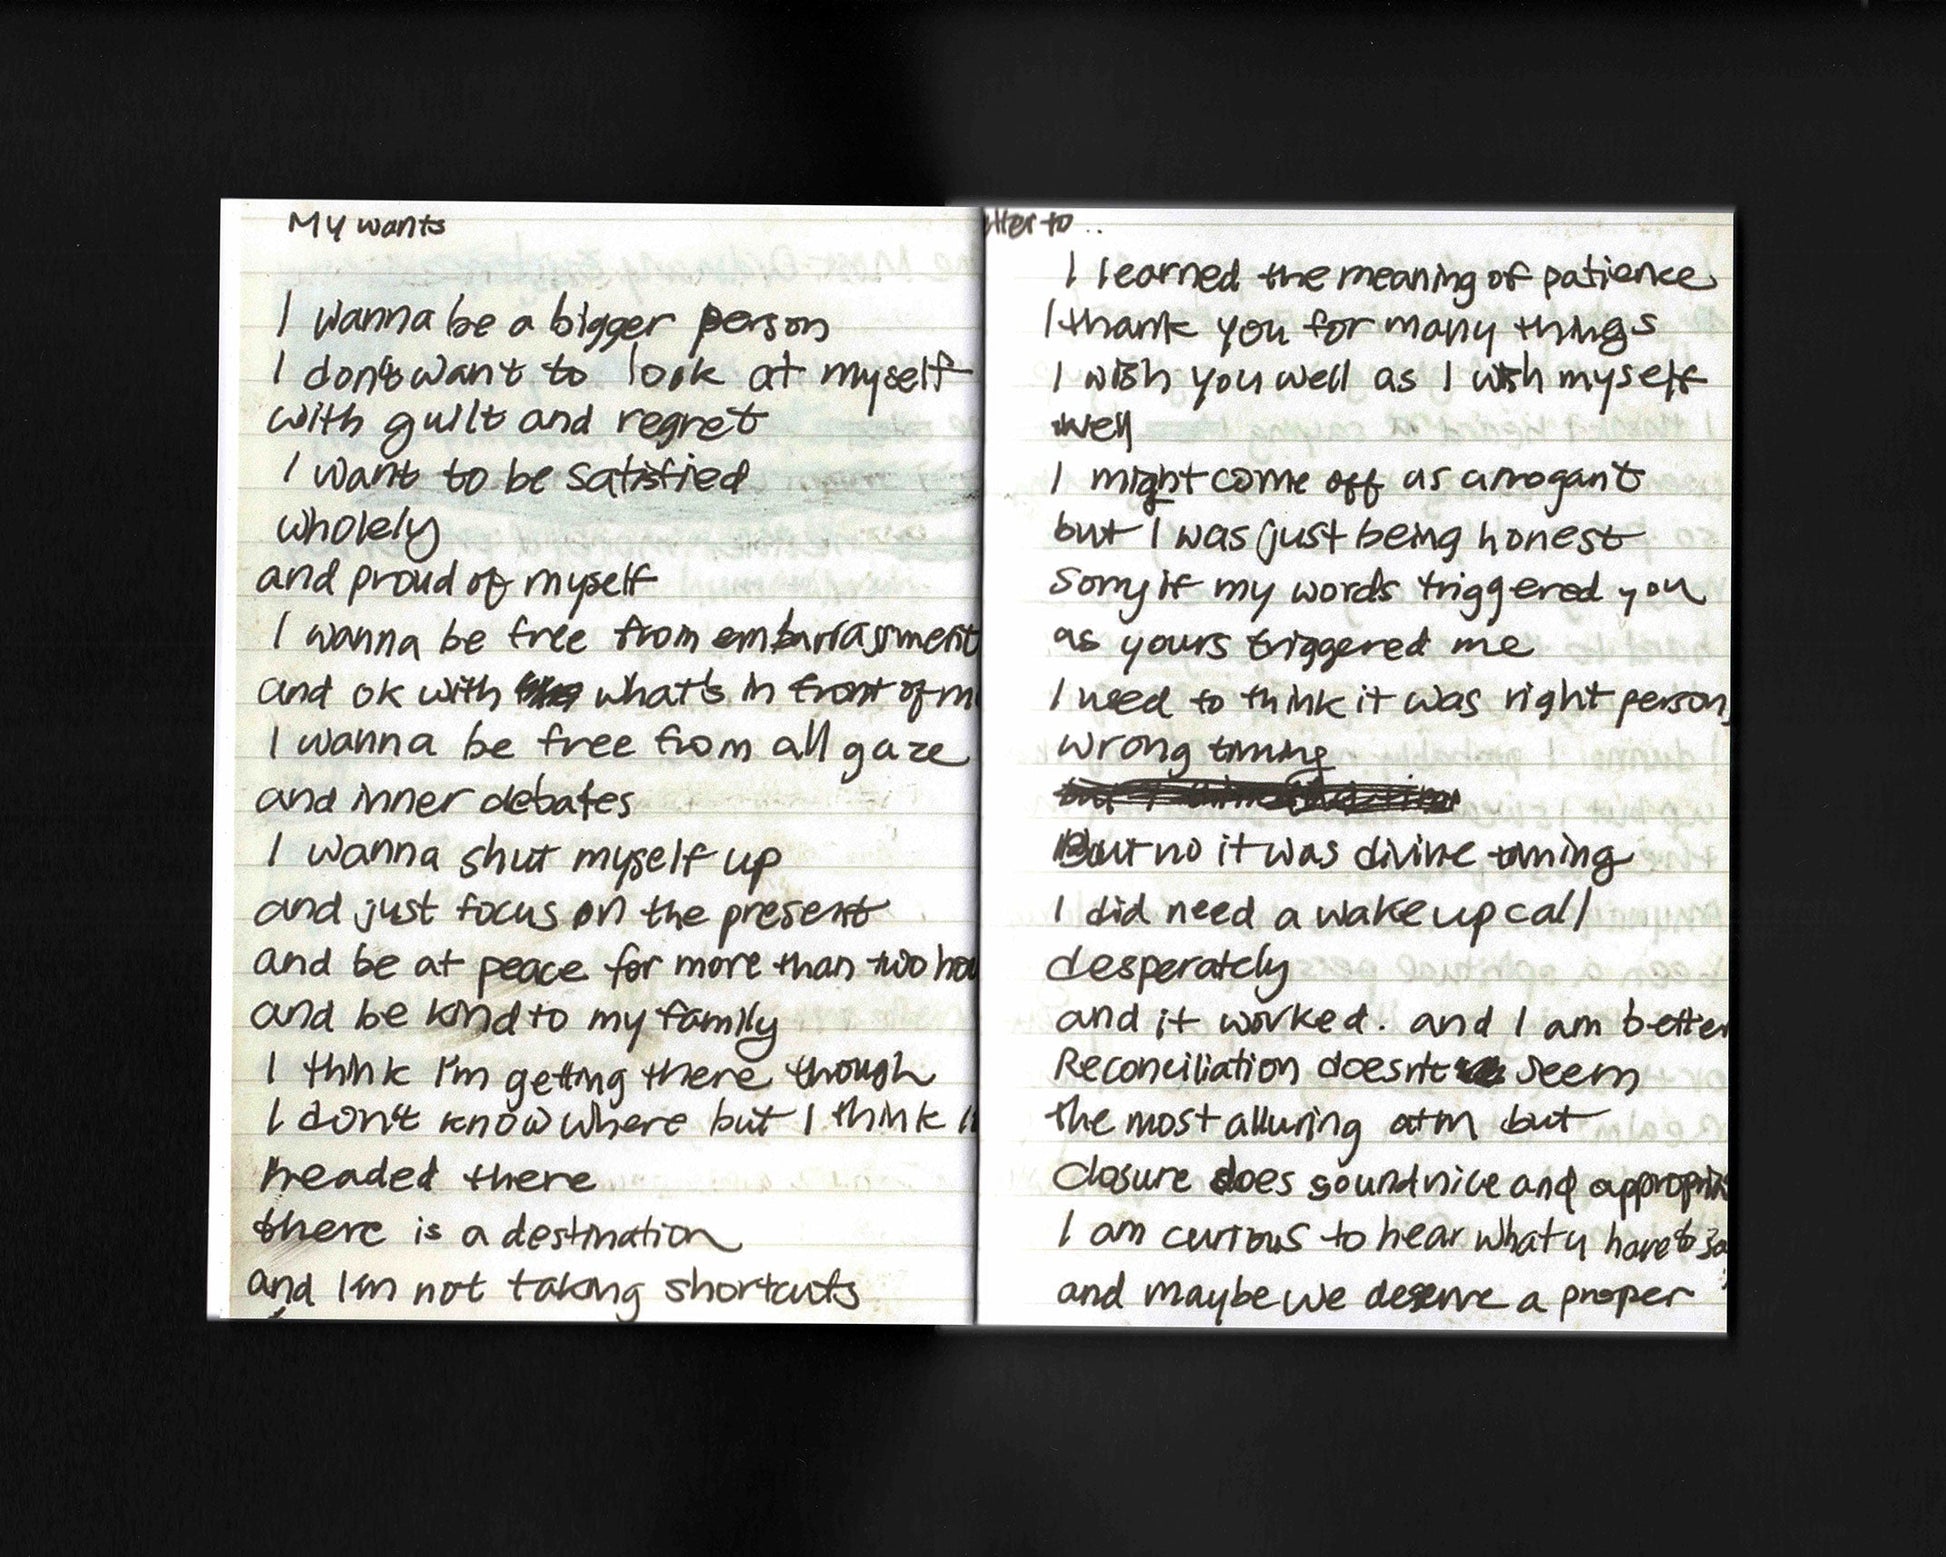 My wants
I wanna be a bigger person
I don't want to look at myself
with guilt and regret
I want to be satisfied
wholely
and proud of myself
I wanna be free from embarrassment
and ok with what's in front of m
I wanna be free from all gaze
and inner debates
I wanna shut myself up
and just focus on the present
and be at peace for more than two hou
and be kind to my family
I think I'm getting there though
I don't know where but I think i
headed there
there is a destination
and I'm not taking shortcuts
tter to ..
I learned the meaning of patience
I thank you for many things
I wish you well as I wish myself
well
I might come off as arrogant
but I was just being honest
Sorry if my words triggered you
as yours triggered me
I used to think it was right person,
wrong timing
But no it was divine timing
I did need a wake up call
desperately
and it worked. and I am better
Reconciliation doesn't seem
the most alluring atm but
Closure does sound nice and appropria
I am curious to hear what u have to sa
and maybe we deserve a proper